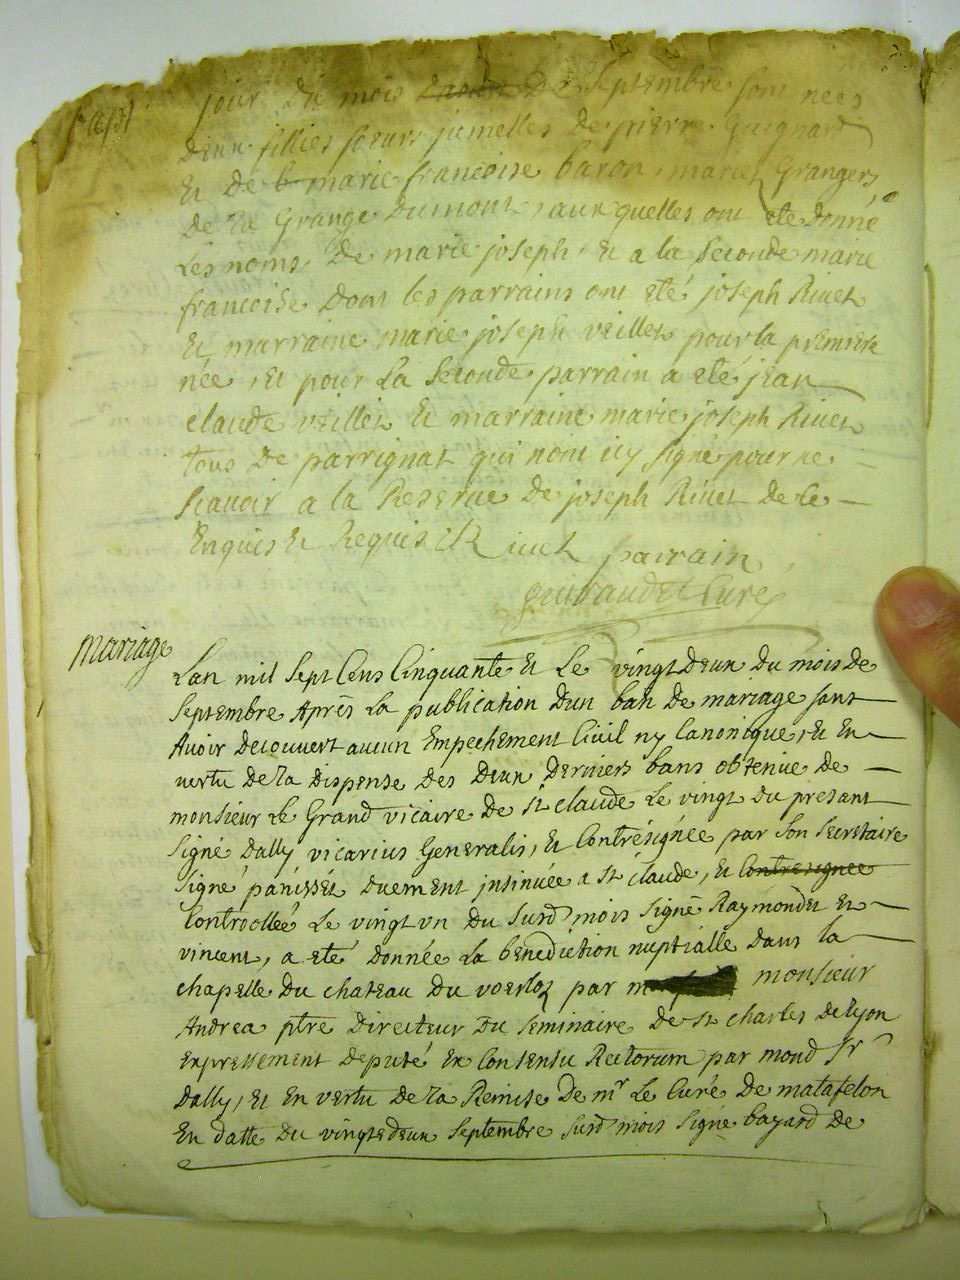 Bapt
jour du mois de Septembre sont nées
Deux fillies soeurs jumelles de pierre Guignard
Et de marie francoise baron, mariez Grangers
de la Grange Dumont, auxquelles ont eté donné
Les noms de marie joseph, Et a la Seconde marie
francoise Dont les parrains ont eté joseph Rivet
Et marraine marie joseph veillet pour la premiere
née, Et pour La Seconde parrain a eté jean
claude veillet Et marraine marie joseph Rivet
tous De parrignat qui nont icy signé pour ne
Scavoir a la Reserve de joseph Rivet de ce
Enquis Et Requis J R ivet parrain
guibaudet Curé
Mariage
Lan mil Sept Cens Cinquante Et Le vingtdeux Du mois de
Septembre Après La publication Dun ban De mariage sans
Avoir Decouvert aucun Empechement Civil ny Canonique, Et En
vertu De la Dispense Des Deux Derniers bans obtenue de
monsieur Le Grand vicaire De St claude Le vingt du presant
Signé Dally vicarius Generalis, Et Contresignée par Son Secretaire
Signé panisset duement insinuée a St claude, Et Contresignée
Controllée Le vingt un Du Surd mois Signé Raymondet Et
vincent, a eté Donnée La benediction nuptialle Dans la
chapelle Du chateau Du voerloz par monsieur
Andrea ptre Directeur Du Seminaire De St charles de lyon
Expressement Deputé Ex Consensu Rectorum par mond Sr
Dally, Et En vertu De la Remise De mr Le Curé De matafelon
En datte Du vingtedeux Septembre Surd mois Signé bayard De